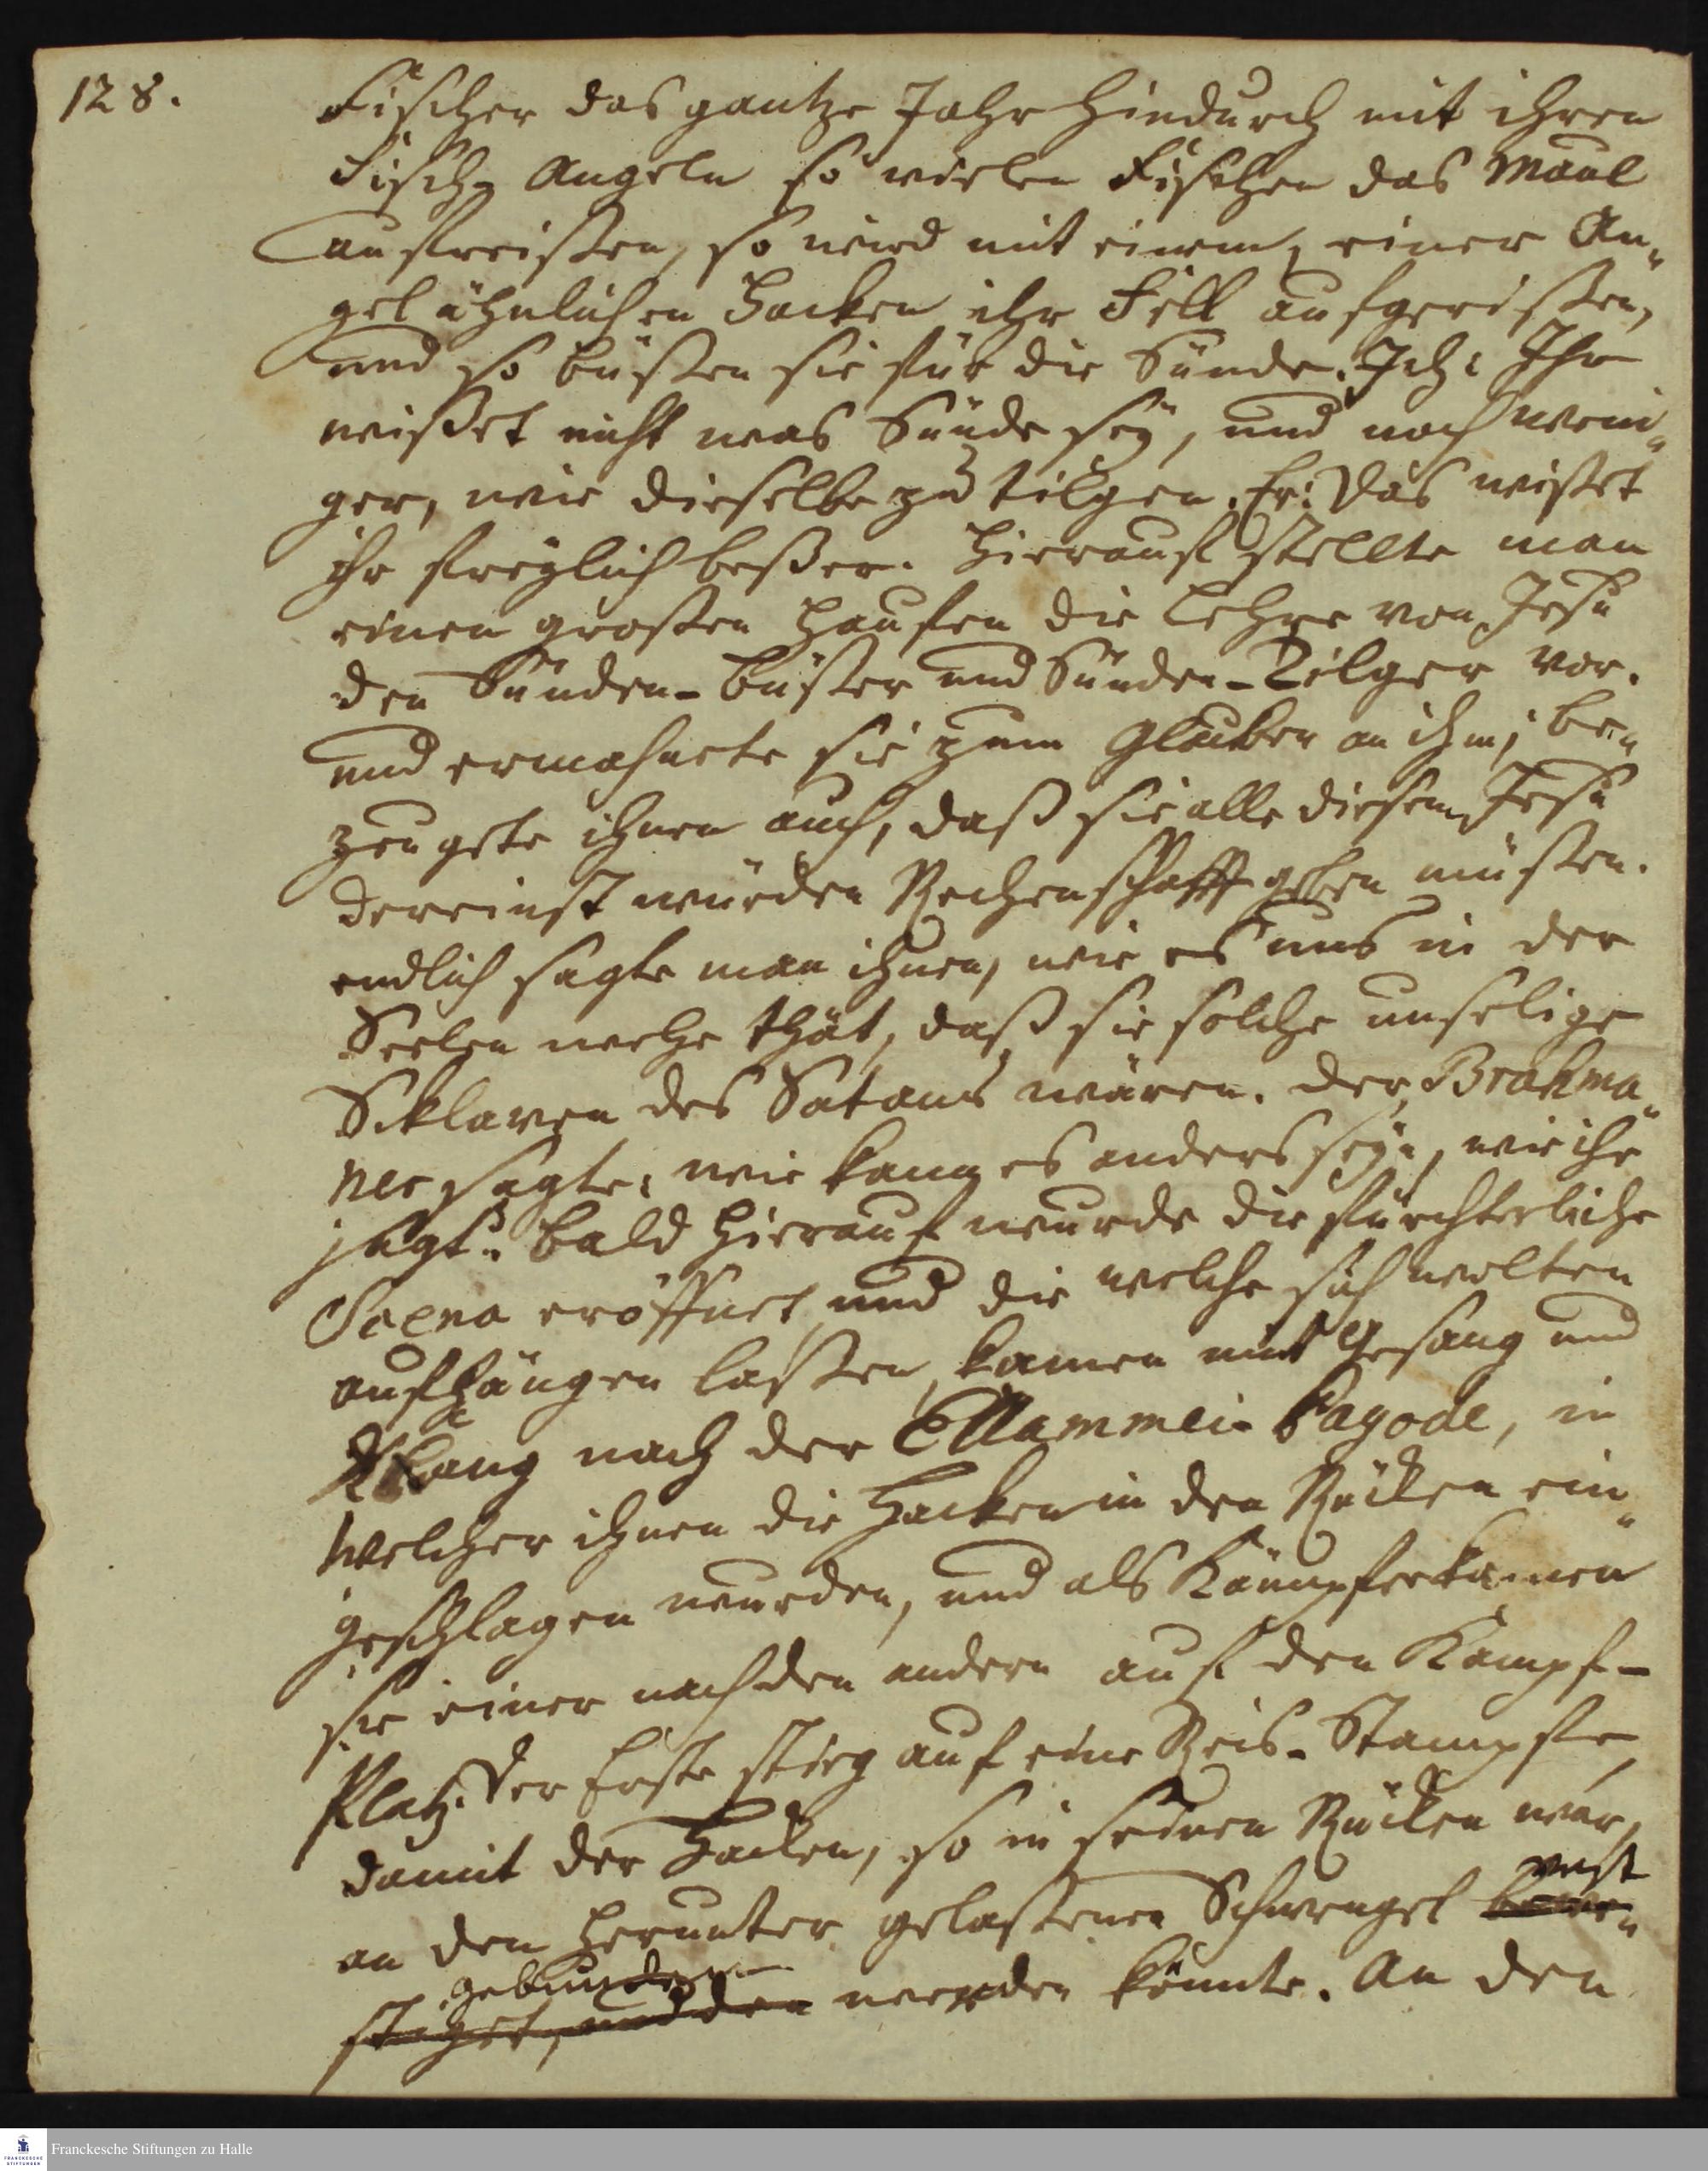 128.
Fischer das gantze Jahr hindurch mit ihren
Fisch-Angeln so vielen Fischen das Maul
aufreißen, so wird mit einem, einer An-
gel ähnlichen Hacken ihr Fell aufgerißen,
und so büßen sie für die Sünde. Ich: Ihr
wißet nicht was Sünde sey, und noch weni-
ger, wie dieselbe zu tilgen. Er: das wißet
ihr freylich beßer. Hierauf stellte man
einen großen Haufen die Lehre von Jesu
den Sünden-Büßer und Sünden-Tilger vor.
und ermahnete sie zum Glauben an ihm; be-
zeugete ihnen auch, daß sie alle diesem Jesu
dereinst würden Rechenschafft geben müßen.
endlich sagte man ihnen, wie es uns in der
Seelen wehe thät, daß sie solche unselige
Scklaven des Satans wären. der Brahma-
ner sagte: wie kann es anders seyn, wie ihr
sagt. Bald hierauf wurde die fürchterliche
Scena eröffnet, und die welche sich wolten
aufhängen laßen, kamen mit Gesang und
Klang nach der Ellammei-Pagode, in
welcher ihnen die Hacken in den Rücken ein-
geschlagen wurden, und als Kämpfer kamen
sie einer nach den andern auf den Kampf-
Platz. Der Erste stieg auf eine Reis-Stampfe,
damit der Hacken, so in seinen Rücken war,
vest
an den herunter gelaßenen Schwengel
gebunden
werden könnte. An den
Franckesche Stiftungen zu Halle